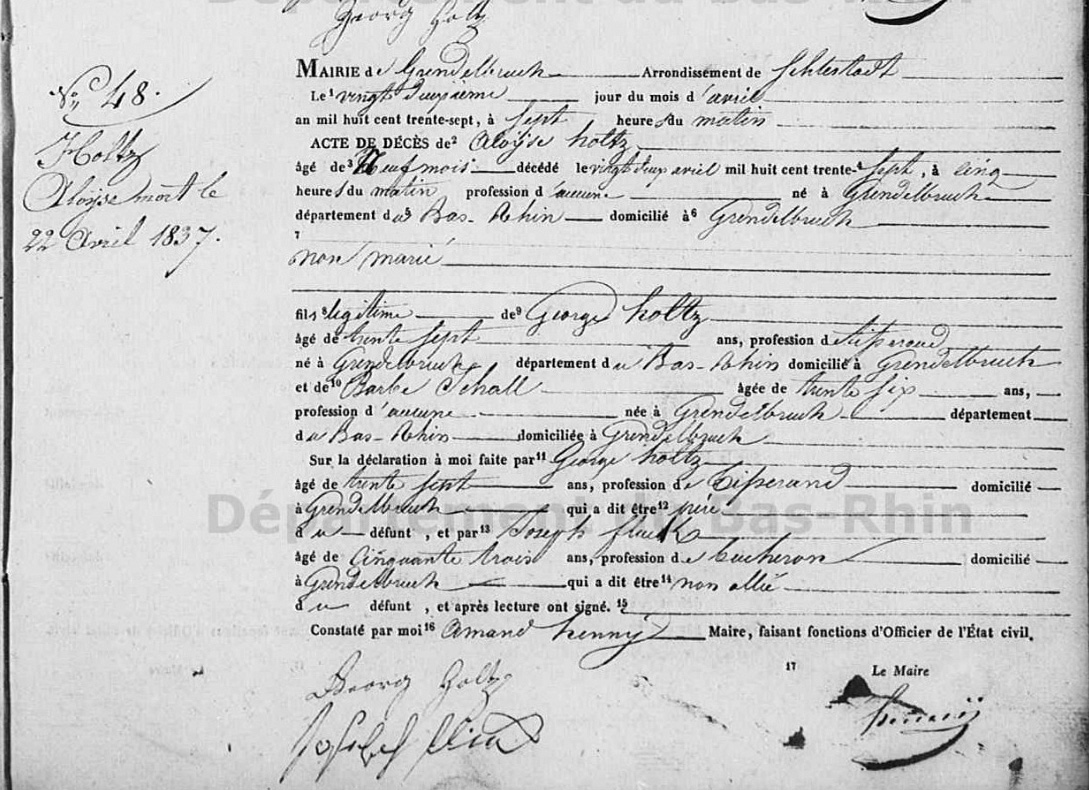 Georg Holtz
N° 48.
Holtz
Aloïse mort le
22 Avril 1837.
MAIRIE de Grendelbruch Arrondissement de Schlestadt
Le 1 vingt deuxième jour du mois d'avril
an mil huit cent trente-sept, à sept heures du matin
ACTE DE DÉCÈS de 2 Aloÿse holtz
âgé de 3 Neuf mois décédé le vingt deux avril mil huit cent trente- 4 sept, à cinq
heures du matin profession d'aucune né à Grendelbruch
département du 5 Bas-Rhin domicilié à 6 Grendelbruch
7
non marié
fils 8 légitime de 9 George holtz
âgé de trente sept ans, profession de
né à Grendelbruch département du Bas-Rhin domicilié à Grendelbruch
et de 10 Barbe Schall âgée de trente six ans,
profession d'aucune née à Grendelbruch département
du Bas-Rhin domiciliée à Grendelbruch
Sur la déclaration à moi faite par 11 George holtz
âgé de trente sept ans, profession de Tisserand domicilié
à Grendelbruch qui a dit être 12 père
du défunt, et par 13 Joseph
âgé de Cinquante trois ans, profession de bucheron domicilié
à Grendelbruch qui a dit être 14 non allié
du défunt, et après lecture ont signé. 15
Constaté par moi 16 Amand henny Maire, faisant fonctions d'Officier de l'État civil.
17 Le Maire
Georg Holtz
Joseph
Département du Bas-Rhin